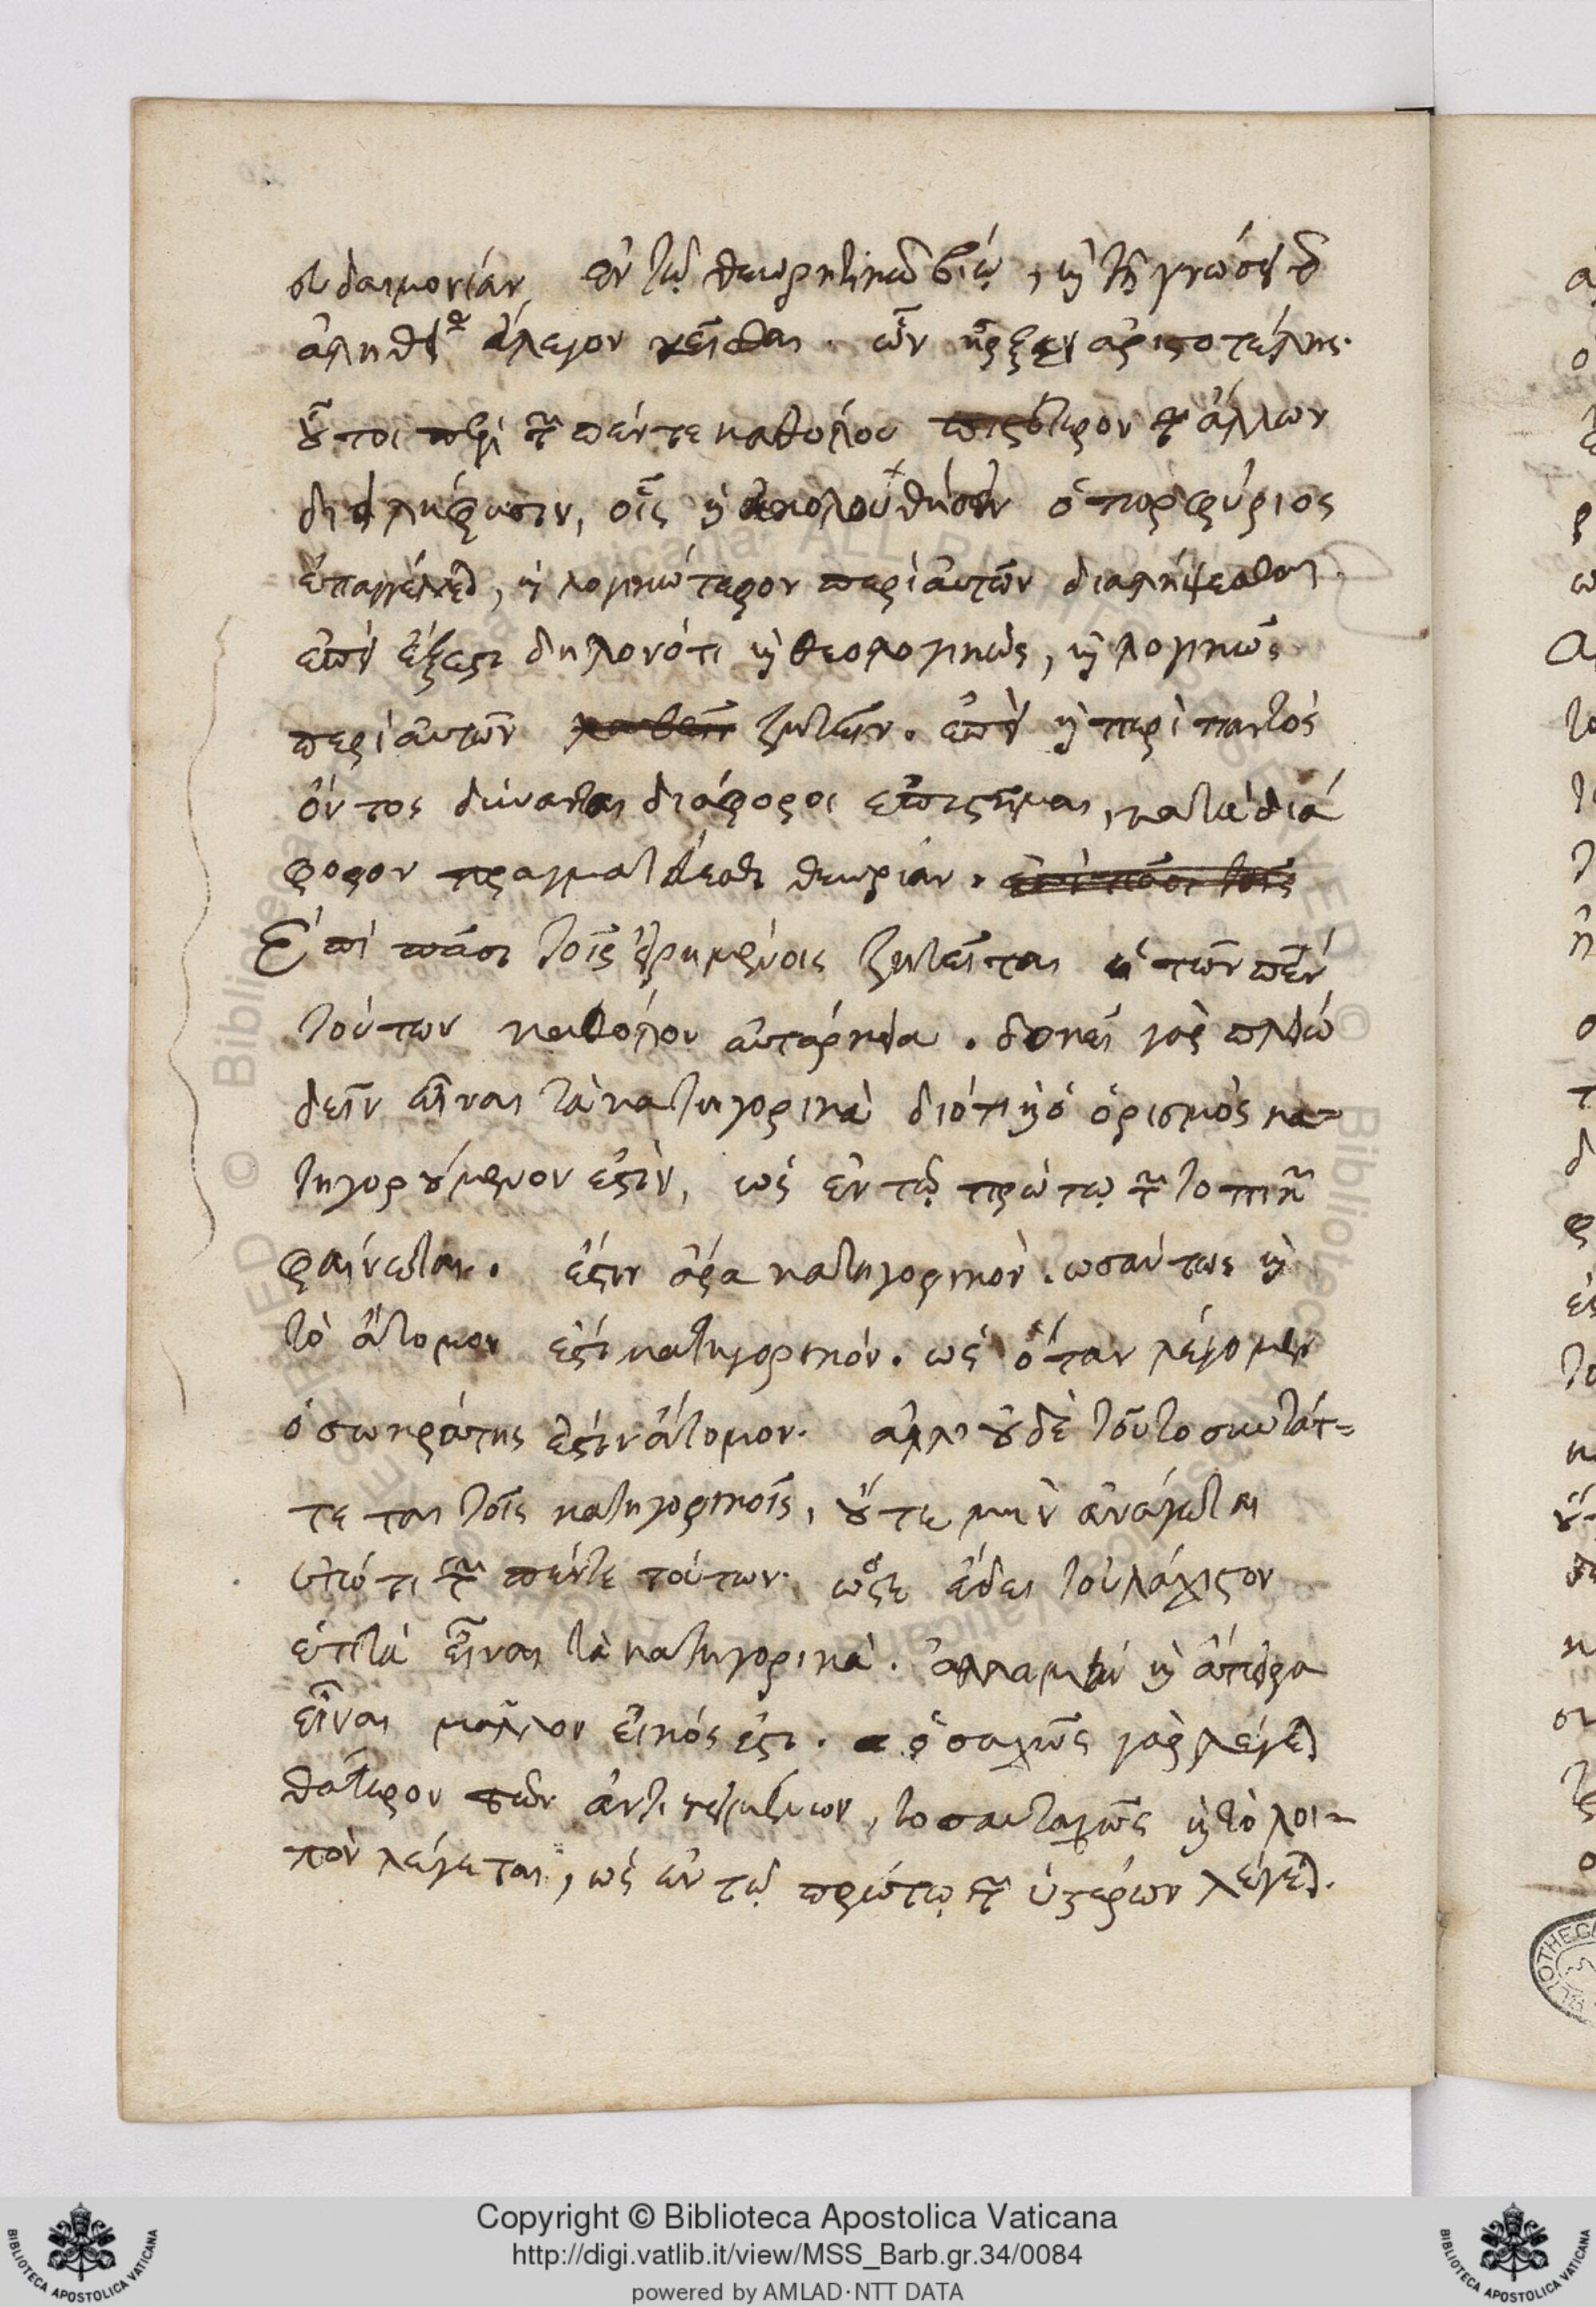 εὐδαιμονίαν ἐν τῷ θεωρητικῷ βίῳ, καὶ τῇ γνώσει τῆς
ἀληθείας ἔλεγον κεῖσθαι. ὧν ἦρξεν ἀριστοτέλης.
οὗτοι περὶ τῶν πέντε καθόλου πιστότερον τῶν ἄλλων
διειλήφασιν, οἷς καὶ ἀκολουθήσειν ὁ πορφύριος
ἐπαγγέλλεται, καὶ λογικώτερον περὶ αὐτῶν διαλήψεσθαι.
ἐπεὶ ἔξεστι δηλονότι καὶ θεολογικῶς, καὶ λογικῶς
περὶ αὐτῶν ζητεῖν. ἐπεὶ καὶ περὶ παντός
ὄντος δύνανται διάφοροι ἐπιστῆμαι, κατὰ διά
φορον πραγματεύεσθαι θεωρίαν. ἐπὶ πᾶσι τοῖς
Ἐπὶ πᾶσι τοῖς εἰρημένοις ζητεῖται ἡ τῶν πέν
τούτων καθόλου αὐτάρκεια. δοκεῖ γὰρ πλείω
δεῖν εἶναι τὰ κατηγορικὰ διότι καὶ ὁ ὁρισμὸς κα=
τηγορούμενον ἐστὶν, ὡς ἐν τῷ πρώτῳ τῶν τοπικῶν
φαίνεται. ἔστιν ἄρα κατηγορικὸν. ὡσαύτως καὶ
τὸ ἄτομον ἐστὶ κατηγορικόν. ὡς ὅταν λέγομεν
ὁ σωκράτης ἐστὶν ἄτομον. ἀλλ' οὐδὲ τοῦτο συντάτ=
τεται τοῖς κατηγορικοῖς, οὔτε μὴν ἀνάγεται
ὑπό τι τῶν πέντε τούτων. ὥστε ἔδει τοὐλάχιστον
ἑπτὰ εἶναι τὰ κατηγορικὰ. ἀλλαμὴν καὶ ἄπειρα
εἶναι μᾶλλον εἰκός ἐστι. ὁσαχῶς γὰρ λέγεται
θάτερον τῶν ἀντικειμένων, τοσαυταχῶς καὶ τὸ λοι=
πὸν λέγεται, ὡς ἐν τῷ πρώτῳ τῶν ὑστέρων λέγεται.
Copyright © Biblioteca Apostolica Vaticana
http://digi.vatlib.it/view/MSS_Barb.gr.34/0084
powered by AMLAD·NTT DATA